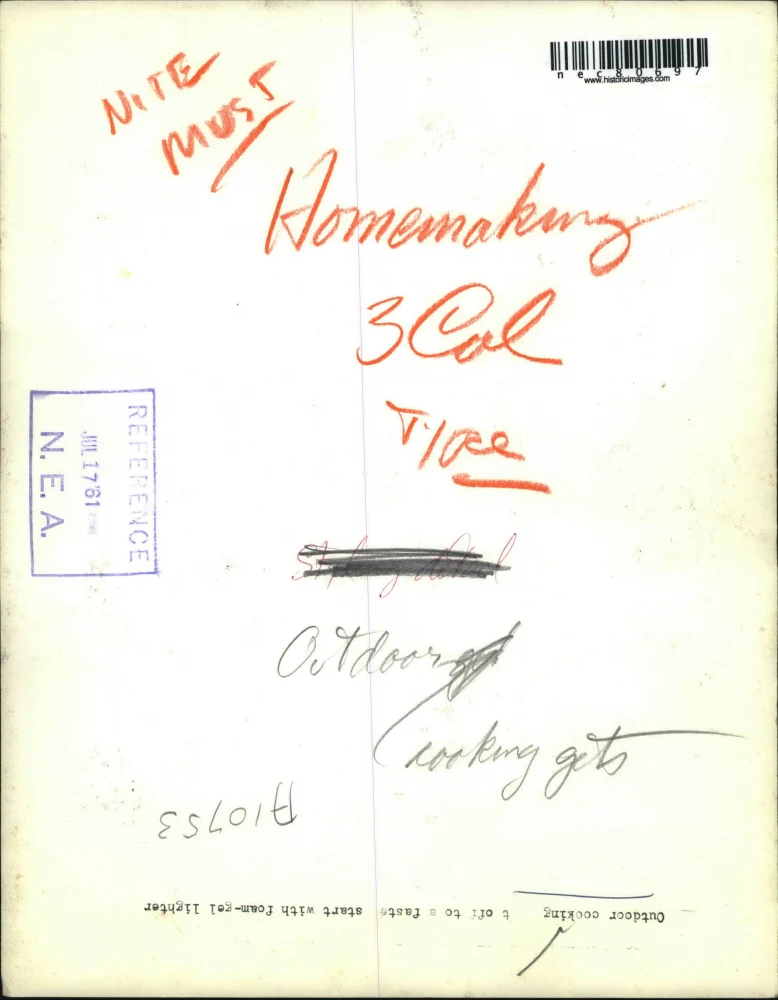 NITE
MUST
nec80697
www.historicimages.com
Homemaking
3 Col
REFERENCE
JUL 17 '61
N. E. A.
Outdoor
cooking gets
A10753
Outdoor cooking t off to a faste start with foam-gel lighter